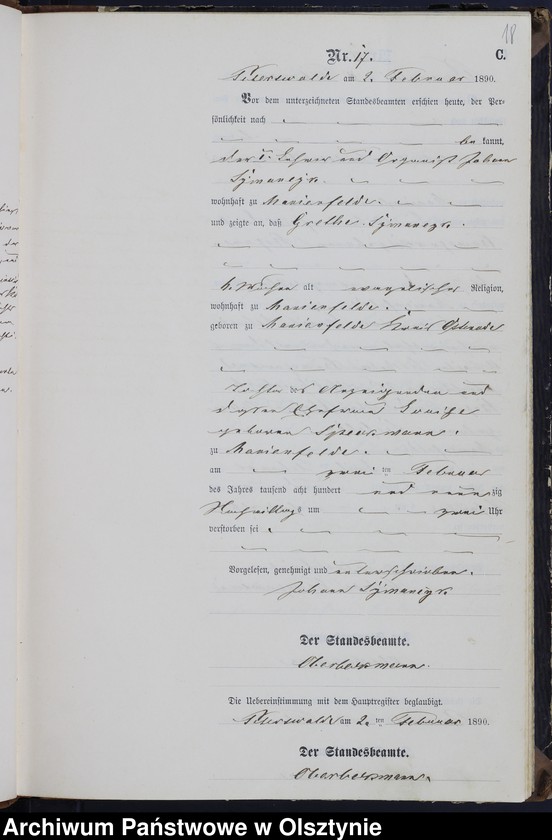 18
Nr. 17. C.
Peterswalde am 2. Februar 1890.
Vor dem unterzeichneten Standesbeamten erschien heute, der Per-
sönlichkeit nach
be kannt,
der I. Lehrer und Organist Johann
Symanczyk.
wohnhaft zu Marienfelde.
und zeigte an, daß Grethe Symanczyk.
6 Wochen alt evangelischer Religion,
wohnhaft zu Marienfelde.
geboren zu Marienfelde Kreis Osterode
Tochter des Anzeigenden und
dessen Ehefrau Louise
geborenen
zu Marienfelde.
am zwei ten Februar
des Jahres tausend acht hundert und neun zig
Nachmittags um zwei Uhr
verstorben sei
Vorgelesen, genehmigt und unterschrieben.
Johann Symanczyk
Der Standesbeamte.
Die Uebereinstimmung mit dem Hauptregister beglaubigt.
Peterswalde am 2. ten Februar 1890.
Der Standesbeamte.
Archiwum Państwowe w Olsztynie